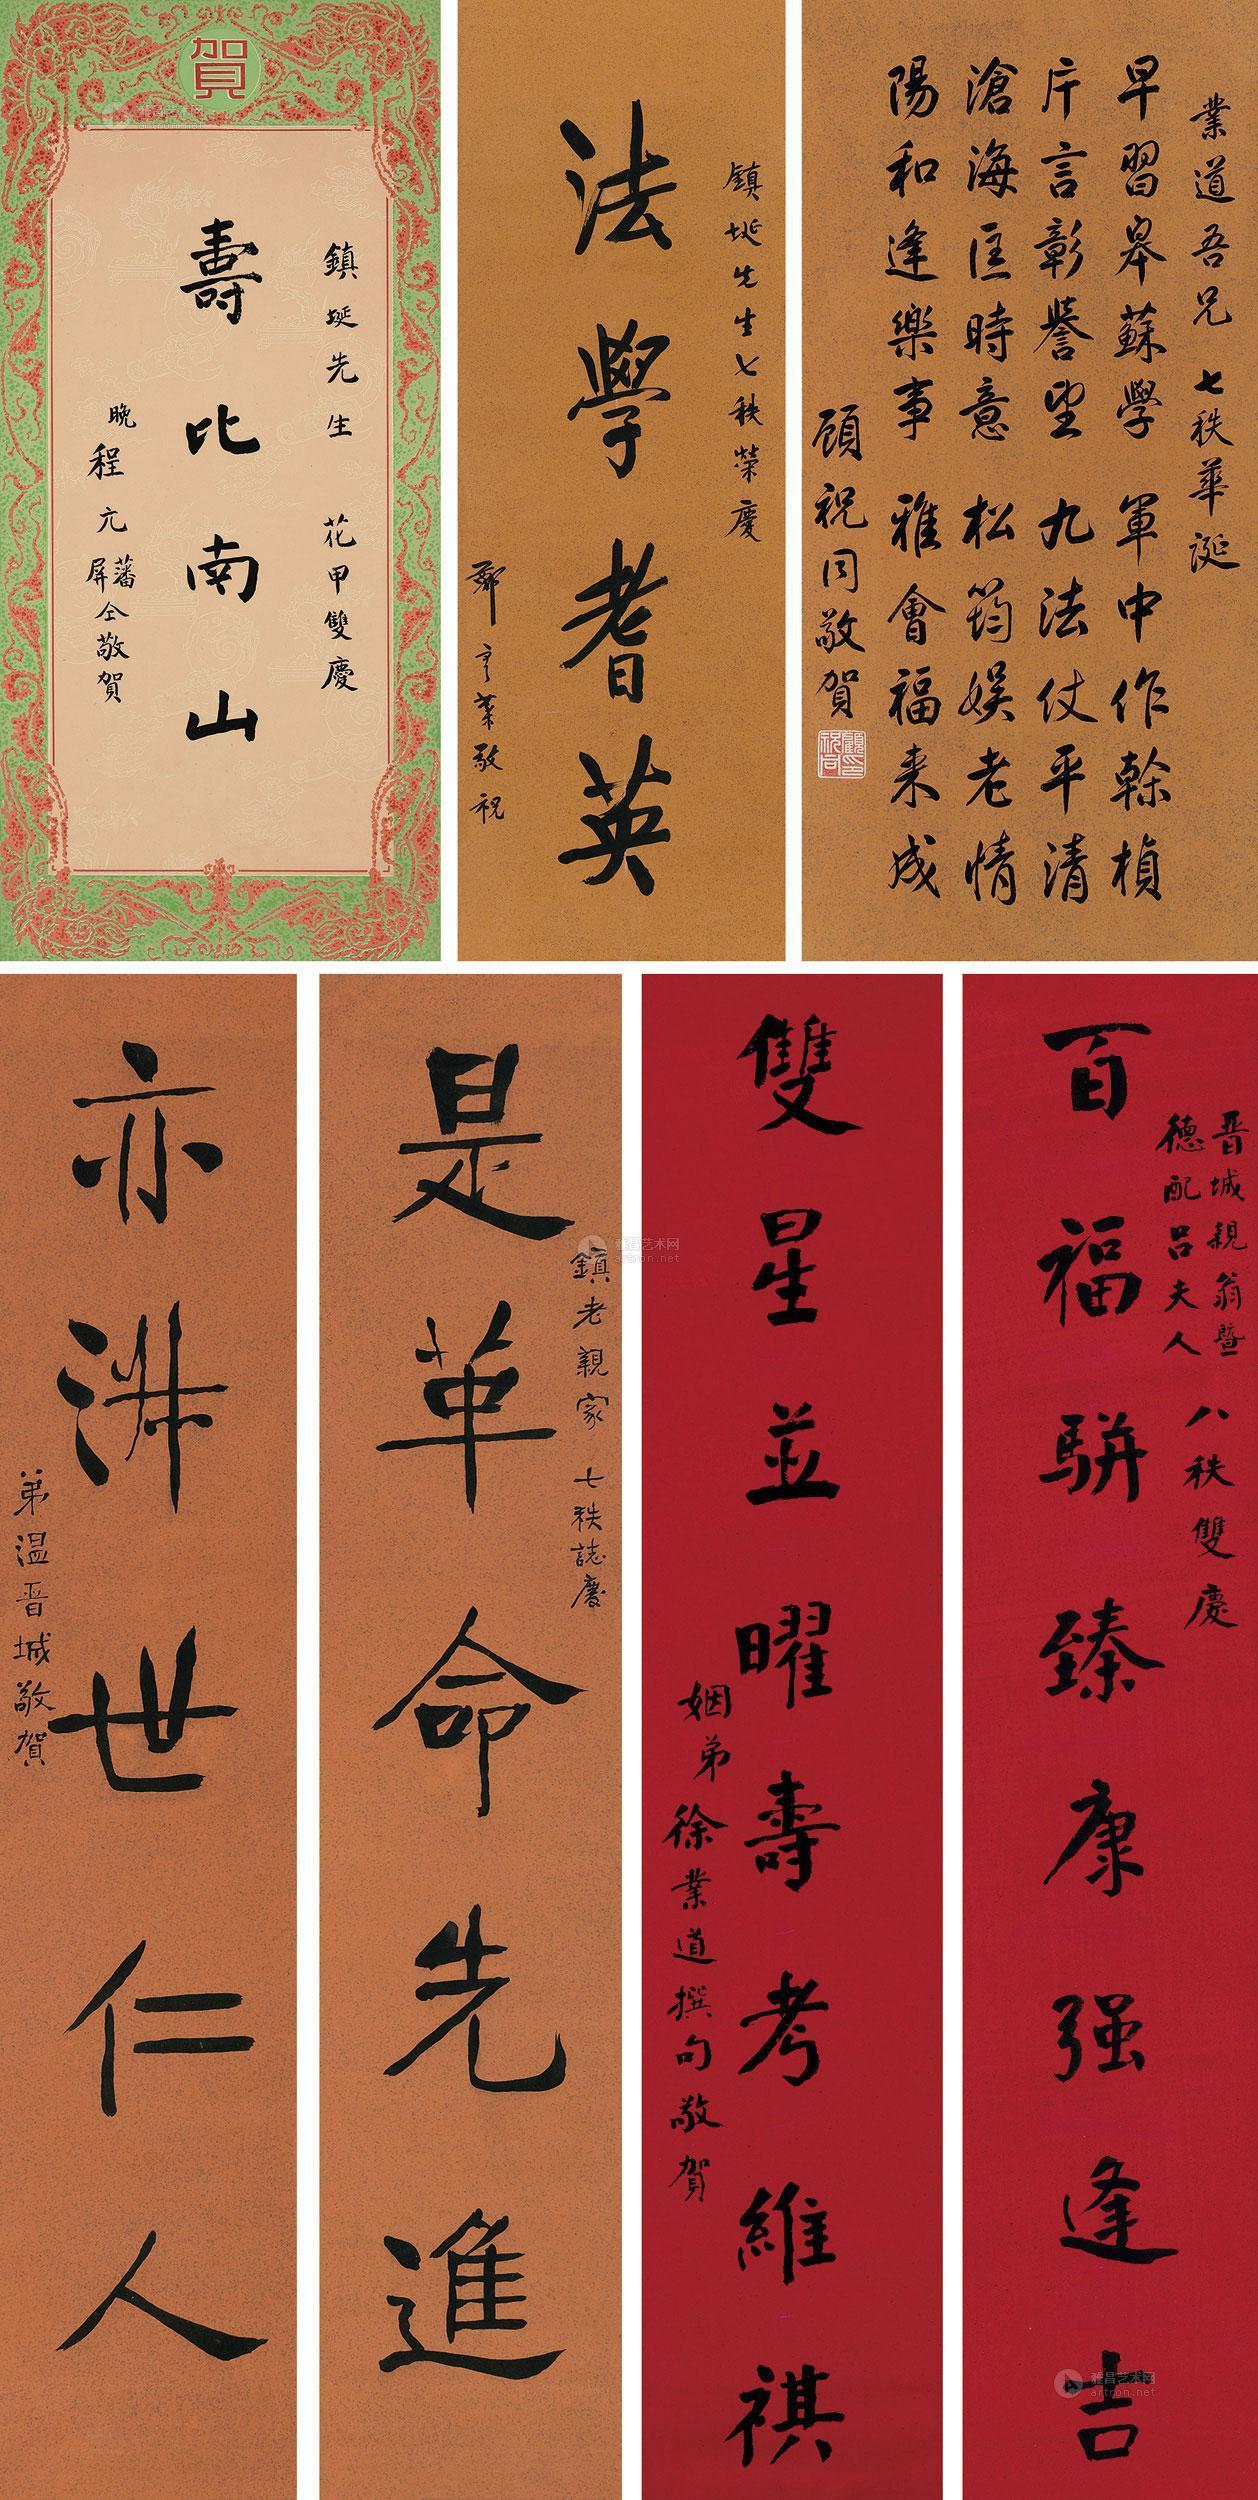 業道吾兄 七秩華誕
早習皋蘇學 軍中作幹楨
片言彰譽望 九法仗平清
滄海匡時意 松筠娛老情
陽和逢樂事 雅會福來成
顧祝同敬賀
顧祝同印
鎮埏先生七秩榮慶
法學耆英
鄭彥棻敬祝
賀
鎮埏先生 花甲雙慶
壽比南山
晚程亢藩屏仝敬賀
晋城親翁暨
德配呂夫人
八秩雙慶
百福駢臻康强逢吉
雙星並曜壽考維祺
姻弟徐業道撰句敬賀
鎮老親家 七秩誌慶
是革命先進
亦淑世仁人
弟溫晋城敬賀
雅昌艺术网
artron.net
雅昌艺术网
artron.net
雅昌艺术网
artron.net